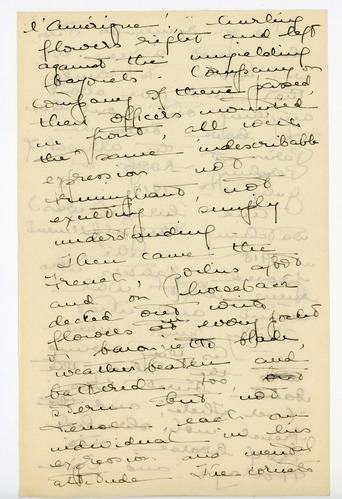 l'Amérique!" hurling
flowers right and left
against the unyielding
bayonets. Company on
company of them passed,
their officers mounted
in front, all with
the same indescribable
expression not
triumphant not
exulting simply
understanding
Then came the
French, poilus afoot
and on horseback
decked out with
flowers at every pocket
bayonette blade,
weather beaten and
battered too
stern but not
tense each an
individual in his
expression and mental
attitude The cornets